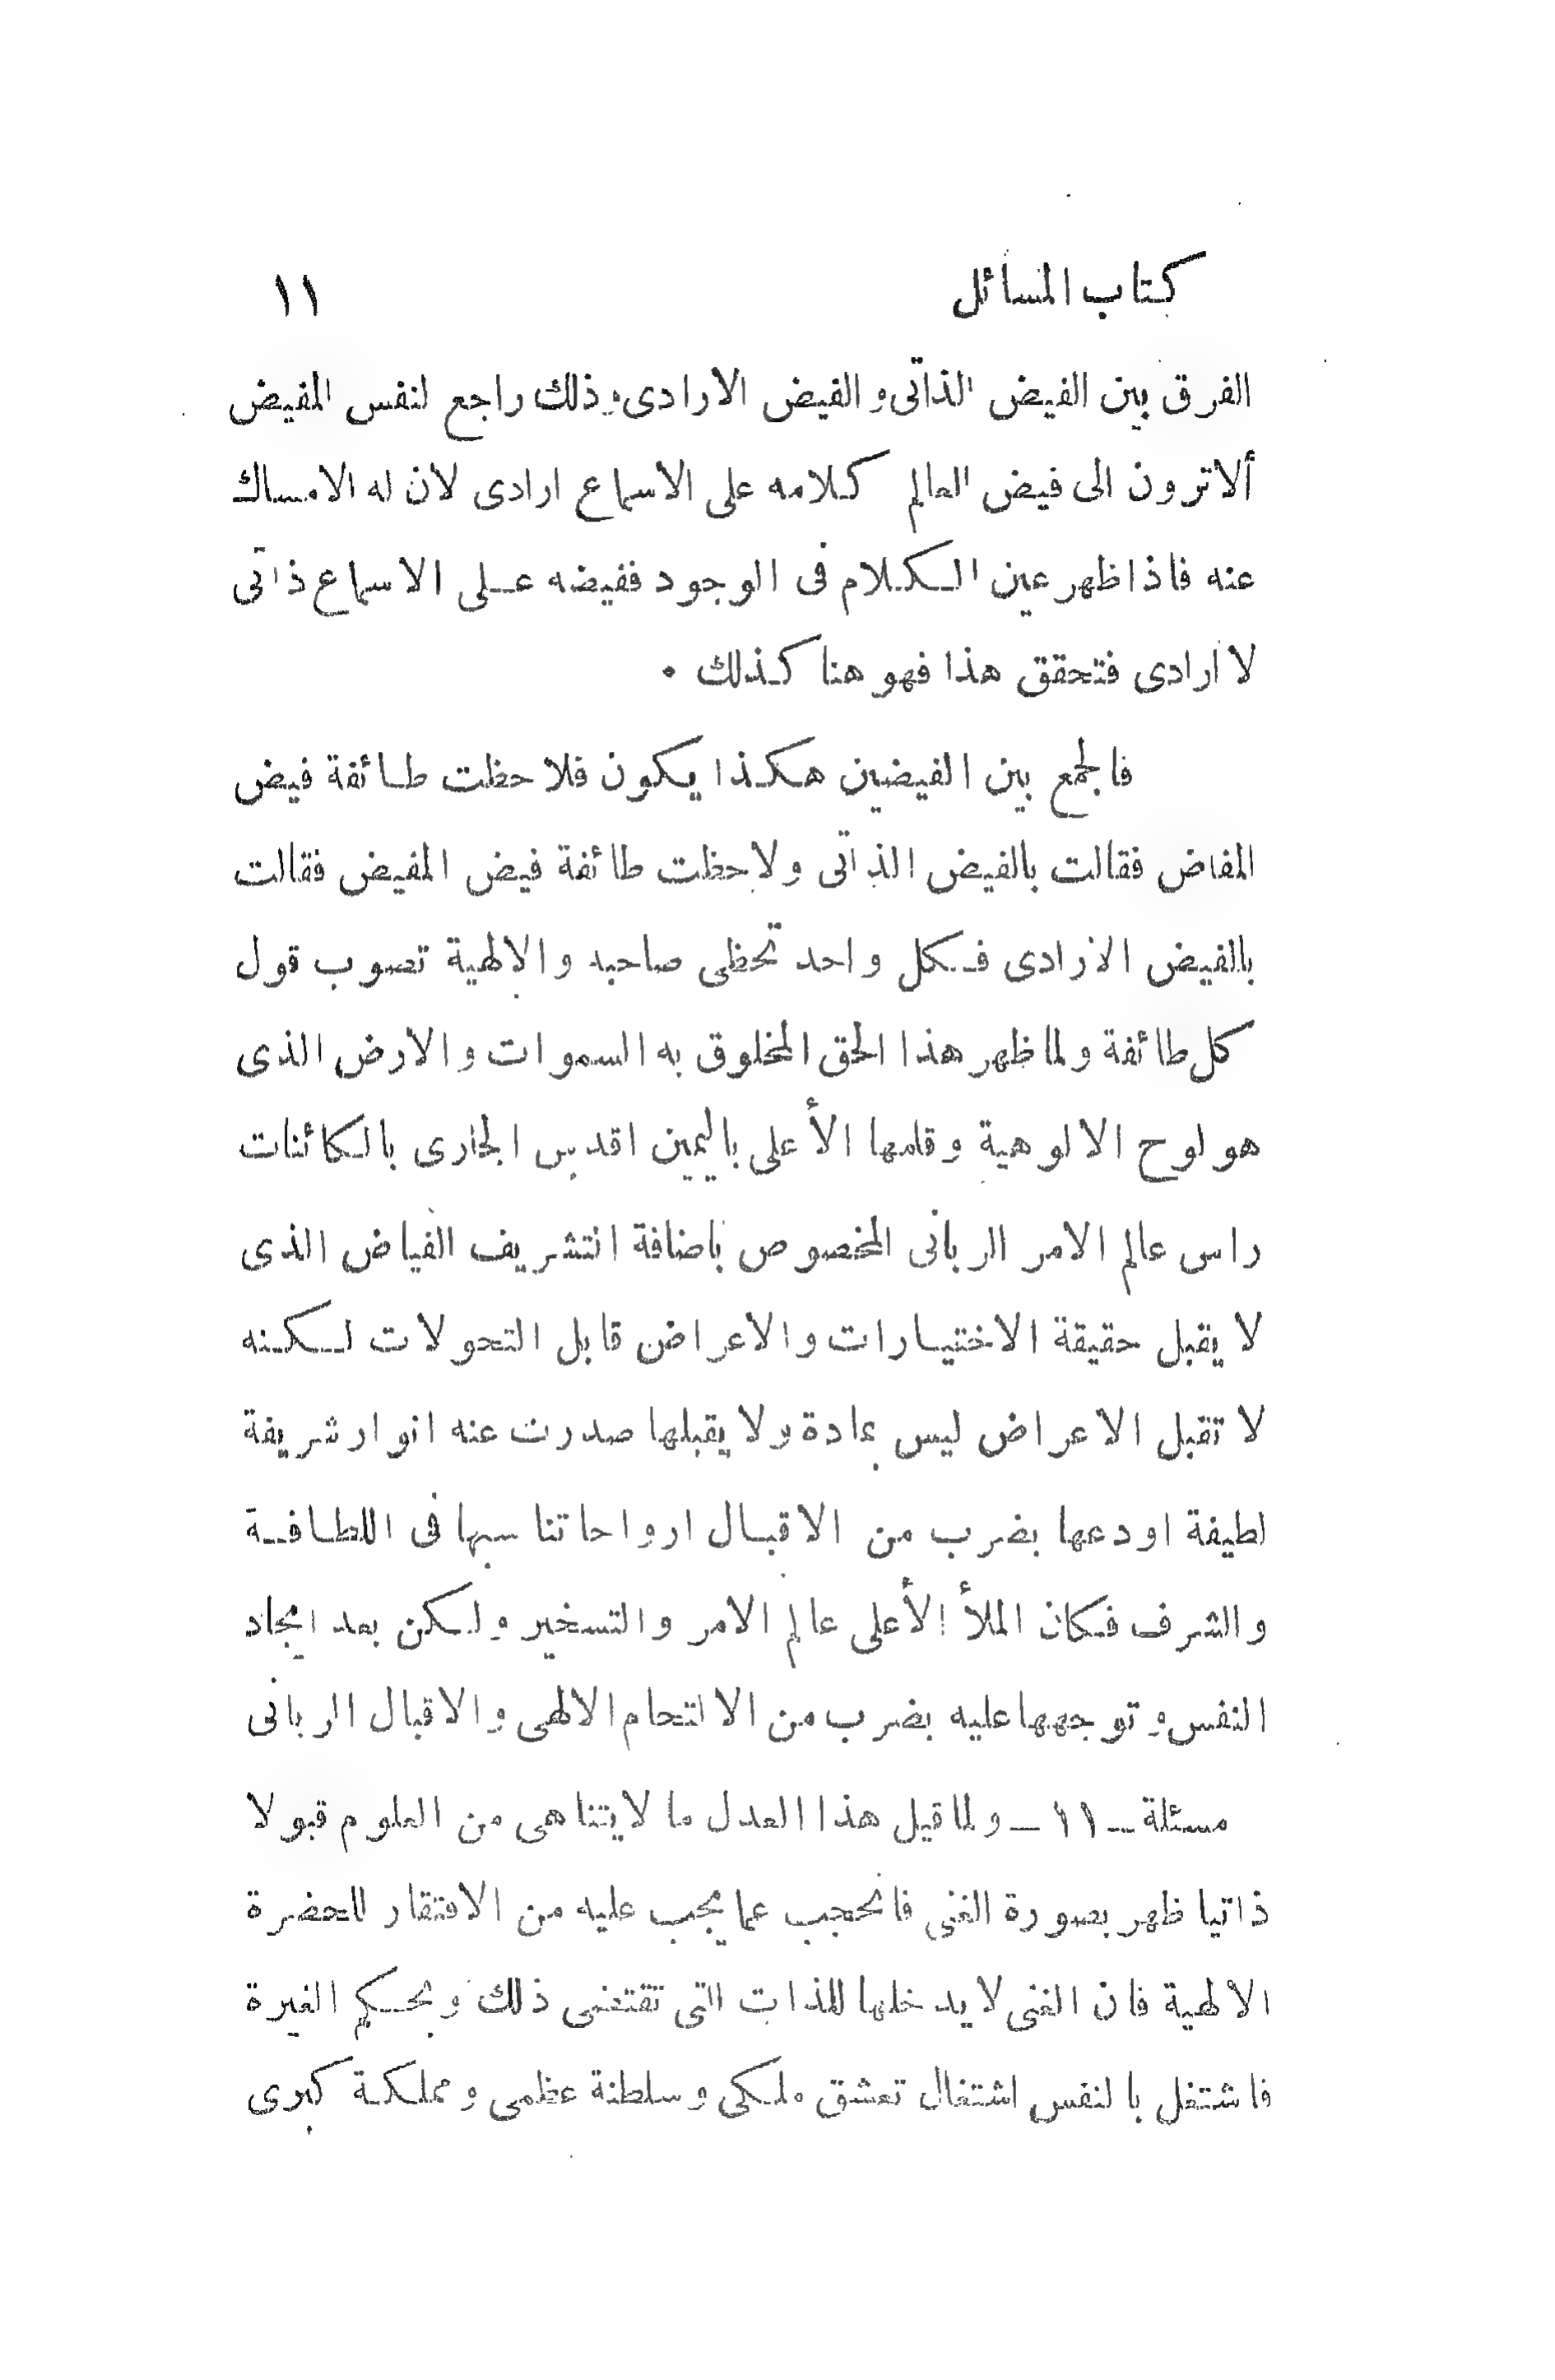 كتاب المسائل ١١
الفرق بين الفيض الذاتى والفيض الارادى وذلك راجع لنفس المفيض
ألا ترون الى فيض العالم كلامه على الاسماع ارادى لان له الامساك
عنه فاذا ظهر عين الكلام فى الوجود ففيضه على الاسماع ذاتى
لا ارادى فتحقق هذا فهو هنا كذلك ٠
فالجمع بين الفيضين هكذا يكون فلاحظت طائفة فيض
المفاض فقالت بالفيض الذاتى ولاحظت طائفة فيض المفيض فقالت
بالفيض الارادى فكل واحد تخطى صاحبه والالهية تصوب قول
كل طائفة ولما ظهر هذا الحق المخلوق به السموات والارض الذى
هو لوح الالوهية وقلمها الأعلى باليمين اقدس الجارى بالكائنات
راس عالم الامر الربانى المخصوص باضافة التشريف الفياض الذى
لا يقبل حقيقة الاختيارات والاعراض قابل التحولات لكنه
لا تقبل الاعراض ليس بمادة ولا يقبلها صدرت عنه انوار شريفة
لطيفة اودعها بضرب من الاقبال ارواحا تناسبها فى اللطافة
والشرف فكان الملأ الأعلى عالم الامر والتسخير ولكن بعد ايجاد
النفس وتوجهها عليه بضرب من الالتحام الالهى والاقبال الربانى
مسئلة ــ ١١ ــ ولما قيل هذا العدل ما لا يتناهى من العلوم قبولا
ذاتيا ظهر بصورة الغنى فانحجب عما يجب عليه من الافتقار للحضرة
الالهية فان الغنى لا يدخلها للذات التى تقتضى ذلك وبحكم الغيرة
فاشتغل بالنفس اشتغال تعشق ملكى وسلطنة عظمى ومملكة كبرى